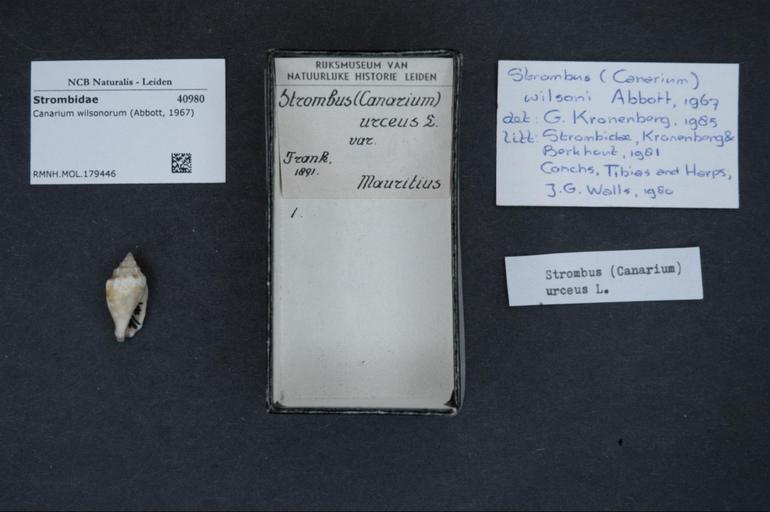 NCB Naturalis - Leiden
Strombidae 40980
Canarium wilsonorum (Abbott, 1967)
RMNH.MOL.179446
RIJKSMUSEUM VAN
NATUURLIJKE HISTORIE LEIDEN
Strombus (Canarium)
urceus L.
var.
Frank,
1891.
Mauritius
1.
Strombus (Canarium)
wilsoni Abbott, 1967
det: G. Kronenberg, 1985
litt: Strombidae, Kronenberg &
Berkhout, 1981
Conchs, Tibias and Harps,
J.G. Walls, 1980
Strombus (Canarium)
urceus L.